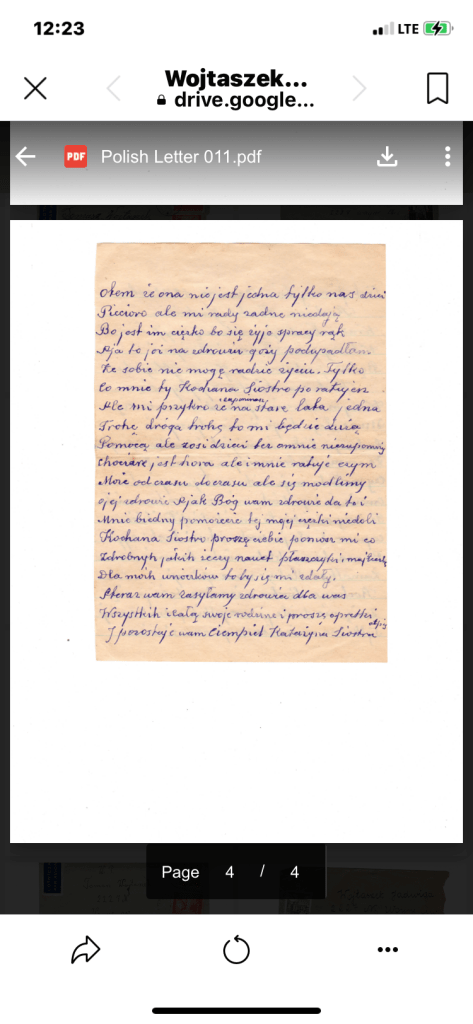 12:23
LTE
Wojtaszek...
drive.google...
PDF Polish Letter 011.pdf
że ona nie jest jedna tylko nas dzieci
Pięcioro ale mi rady żadne niedają
Bo jest im ciężko bo się żyje spracy rąk
Aja to joi na zdrowiu podupadłam
że sobie nie mogę radzić życiu. Tylko
co mnie ty Kochana Siostro poratujesz
Ale mi przykro że na stare lata jedna
zapomnieć
Trochę drogą trochę to mi będzie dużą
Pomocą ale zosi dzieci tez omnie niezapomnij
chociarz jest hora ale imnie ratuje czym
Moze od czasu do czasu ale się modlimy
ojej zdrowie Ajak Bóg wam zdrowie da to i
Mnie biedny pomożecie tej mojej ciężki niedoli
Kochana Siostro proszę ciebie pomóż mi co
zdrobnyh jakih rzeczy nawet płaszczyki
Dla moih wnuków to by się mi zdały.
Ateraz wam zasyłamy zdrowia dla was
Wszystkih i całą swoje rodzine i proszę oprętki
odpis
I pozostaję wam Ciempiel Katarzyna Siostra
Page 4 / 4